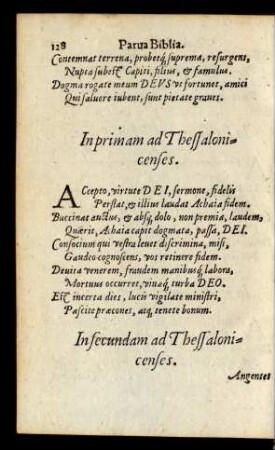 128 Parua Biblia.
Contemnat terrena, probetq́; suprema, resurgens,
Nupta subest Capiti, filius, & famulus.
Dogma rogate meum DEVS vt fortunet, amici
Qui saluere iubent, sunt pietate graues.
In primam ad Thessaloni=
censes.
ACcepto, virtute DEI, sermone, fidelis
Perstat, & illius laudat Achaia fidem.
Buccinat auctus, & absq́; dolo, non premia, laudem,
Quærit, Achaia capit dogmata, passa, DEI.
Consocium qui vestra leuet discrimina, misi,
Gaudeo cognoscens, vos retinere fidem.
Deuita venerem, fraudem manibusq́; labora,
Mortuus occurret, viuaq́; turba DEO.
Est incerta dies, lucis vigilate ministri,
Pascite præcones, atq́; tenete bonum.
In secundam ad Thessaloni=
censes.
Angentes